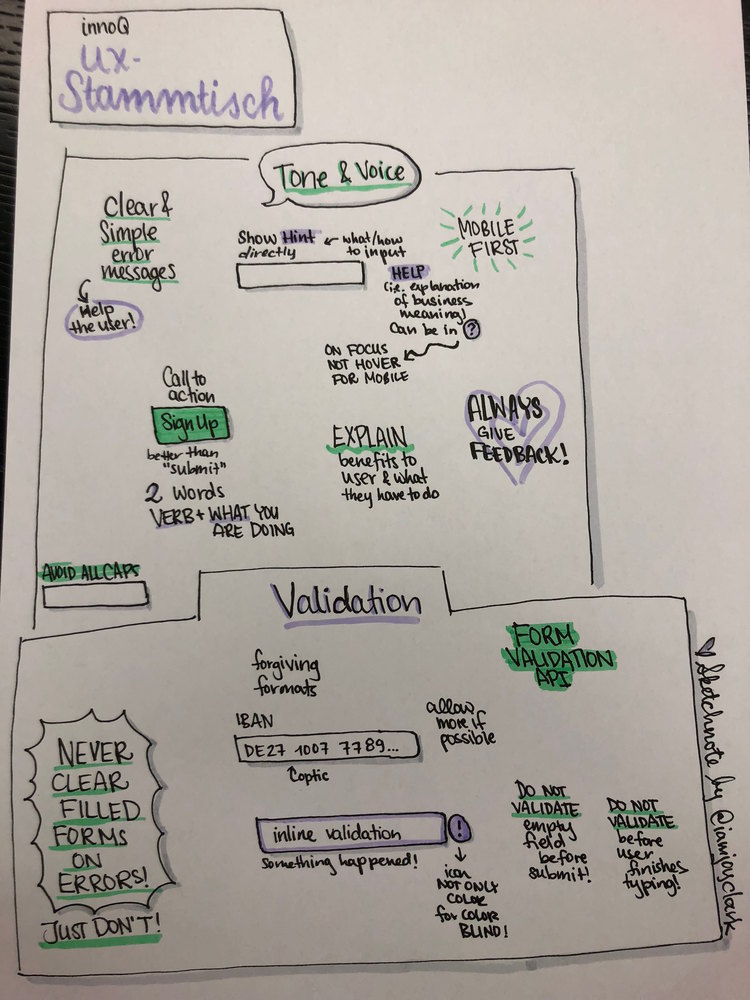 innoQ
UX-
Stammtisch
Tone & Voice
Clear &
Simple
error
messages
Help
the user!
Show Hint
directly
what/how
to input
HELP
(i.e. explanation
of business
meaning)
Can be in ?
ON FOCUS
NOT HOVER
FOR MOBILE
MOBILE
FIRST
Call to
action
Sign Up
better than
"submit"
2 words
VERB + WHAT YOU
ARE DOING
EXPLAIN
benefits to
user & what
they have to do
ALWAYS
GIVE
FEEDBACK!
AVOID ALL CAPS
Validation
forgiving
formats
IBAN
DE27 1007 7789...
Coptic
allow
more if
possible
FORM
VALIDATION
API
NEVER
CLEAR
FILLED
FORMS
ON
ERRORS!
JUST DON'T!
inline validation
!
something happened!
icon
NOT ONLY
COLOR
for COLOR
BLIND!
DO NOT
VALIDATE
empty
field
before
submit!
DO NOT
VALIDATE
before
user
finishes
typing!
Sketchnote by @iamjoyclark